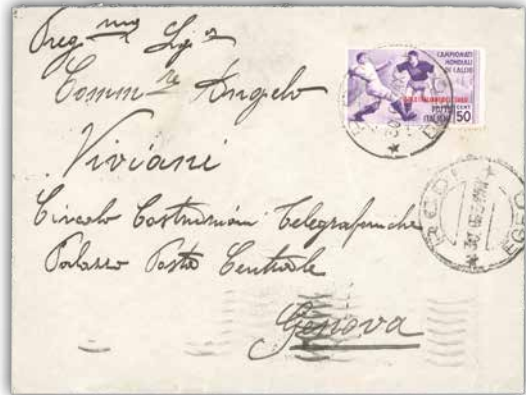 Preg mo Sig r
Comm re Angelo
Viviani
Circolo Costruzioni Telegrafiche
Palazzo Posta Centrale
Genova
CAMPIONATI
MONDIALI
DI CALCIO
ISOLE ITALIANE DELL'EGEO
POSTE
ITALIANE
CENT
50
RODI
EGEO